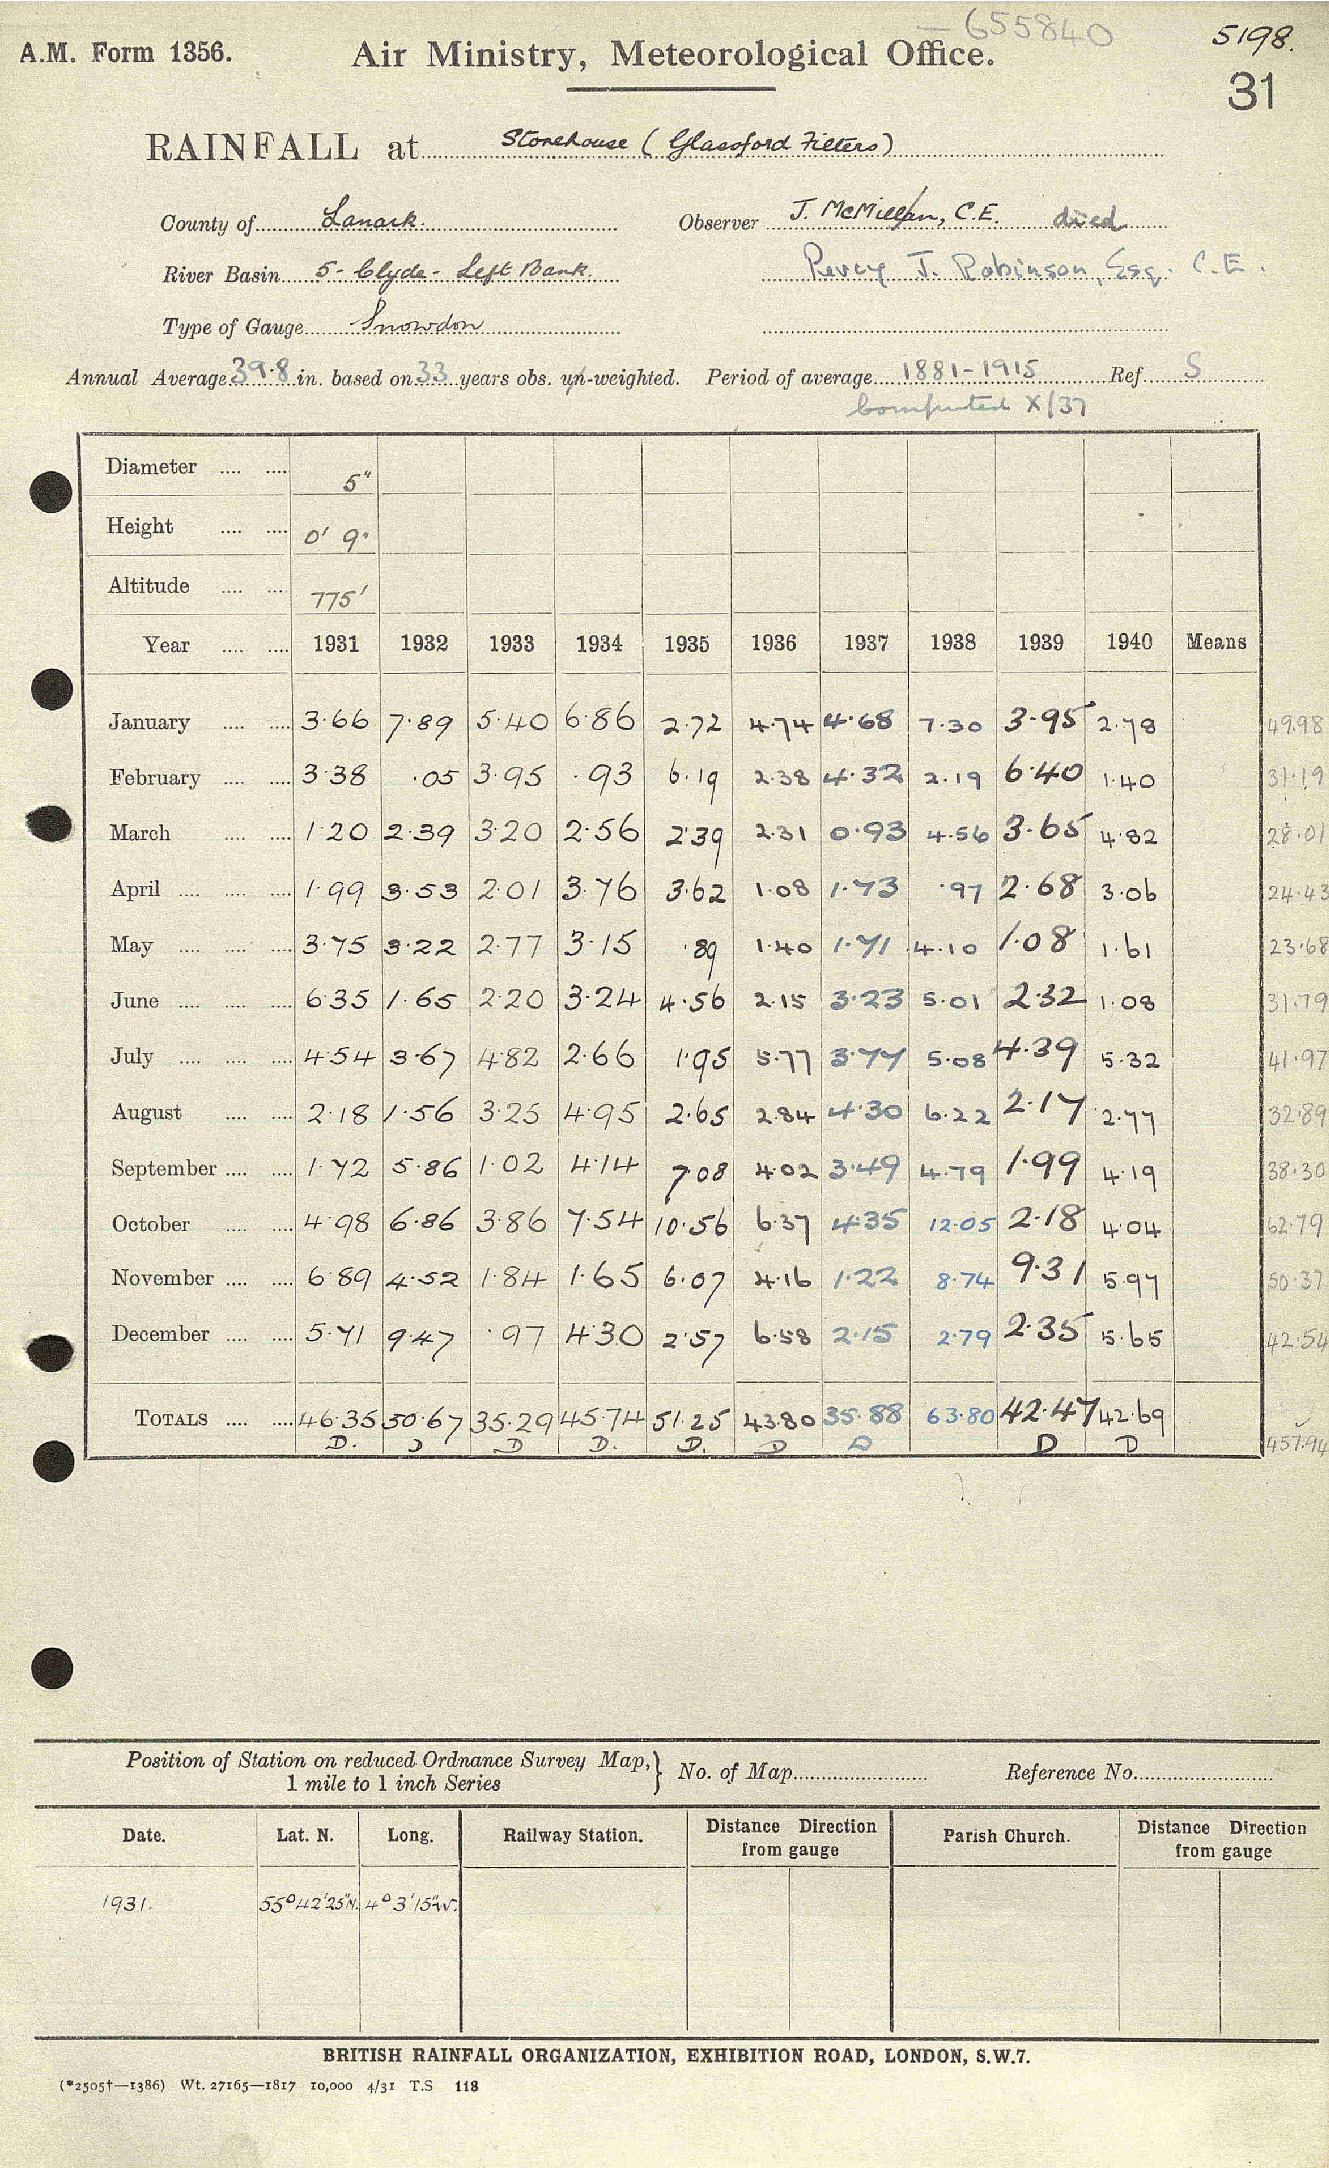 655840
5198.
A.M. Form 1356.
Air Ministry, Meteorological Office.
31
RAINFALL at Stonehouse (Glassford Filters)
County of Lanark. Observer J. McMillan, C.E. died
River Basin 5 - Clyde - Left Bank. Percy J. Robinson, Esq. C.E.
Type of Gauge Snowdon
Annual Average 39.8 in. based on 33 years obs. un-weighted. Period of average 1881-1915 Ref. S
Computed X/37
Diameter .... .... 5"
Height .... .... 0' 9"
Altitude .... .... 775'
Year .... .... 1931 1932 1933 1934 1935 1936 1937 1938 1939 1940 Means
January .... .... 3.66 7.89 5.40 6.86 2.72 4.74 4.68 7.30 3.95 2.78 49.98
February .... .... 3.38 .05 3.95 .93 6.19 2.38 4.32 2.19 6.40 1.40 31.19
March .... .... 1.20 2.39 3.20 2.56 2.39 2.31 0.93 4.56 3.65 4.82 28.01
April .... .... .... 1.99 3.53 2.01 3.76 3.62 1.08 1.73 .97 2.68 3.06 24.43
May .... .... .... 3.75 3.22 2.77 3.15 .89 1.40 1.71 4.10 1.08 1.61 23.68
June .... .... .... 6.35 1.65 2.20 3.24 4.56 2.15 3.23 5.01 2.32 1.08 31.79
July .... .... .... 4.54 3.67 4.82 2.66 1.95 5.77 3.77 5.08 4.39 5.32 41.97
August .... .... 2.18 1.56 3.25 4.95 2.65 2.84 4.30 6.22 2.17 2.77 32.89
September .... .... 1.72 5.86 1.02 4.14 7.08 4.02 3.49 4.79 1.99 4.19 38.30
October .... .... 4.98 6.86 3.86 7.54 10.56 6.37 4.35 12.05 2.18 4.04 62.79
November .... .... 6.89 4.52 1.84 1.65 6.07 4.16 1.22 8.74 9.31 5.97 50.37
December .... .... 5.71 9.47 .97 4.30 2.57 6.58 2.15 2.79 2.35 5.65 42.54
TOTALS .... .... 46.35 50.67 35.29 45.74 51.25 43.80 35.88 63.80 42.47 42.69
D. D D D. D. D D D D 457.94
Position of Station on reduced Ordnance Survey Map, } No. of Map Reference No.
1 mile to 1 inch Series
Date. Lat. N. Long. Railway Station. Distance Direction from gauge Parish Church. Distance Direction from gauge
1931. 55° 42' 25" N. 4° 3' 15" W.
BRITISH RAINFALL ORGANIZATION, EXHIBITION ROAD, LONDON, S.W.7.
(*2505†—1386) Wt. 27165—1817 10,000 4/31 T.S 118